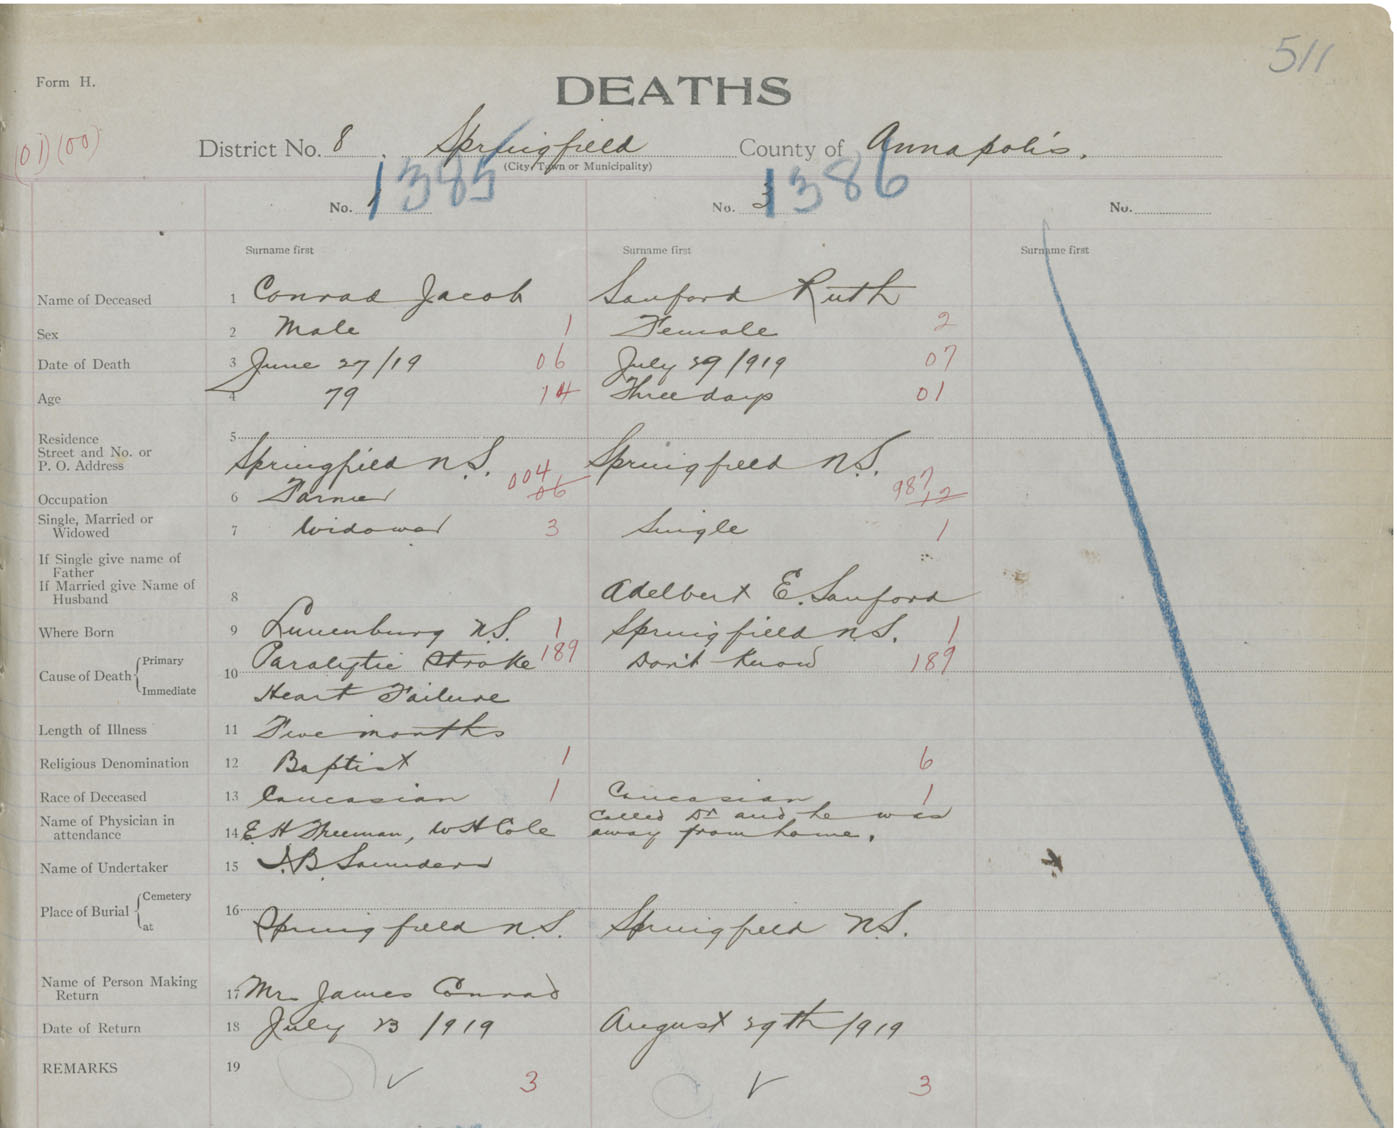 511
Form H.
DEATHS
(01) (00)
District No. 8. Springfield County of Annapolis.
(City, Town or Municipality)
1385 1386
No. 1 No. 3 No.
Surname first Surname first Surname first
Name of Deceased 1 Conrad Jacob Sanford Ruth
Sex 2 Male 1 Female 2
Date of Death 3 June 27/19 06 July 29/1919 07
Age 4 79 14 Three days 01
Residence 5
Street and No. or
P. O. Address Springfield N.S. Springfield N.S.
004 987
Occupation 6 Farmer 06 12
Single, Married or
Widowed 7 Widowed 3 Single 1
If Single give name of
Father
If Married give Name of
Husband 8 Adelbert E. Sanford
Where Born 9 Lunenburg N.S. 1 Springfield N.S. 1
Cause of Death { Primary 10 Paralytic Stroke 189 Don't Know 189
Immediate Heart Failure
Length of Illness 11 Five months
Religious Denomination 12 Baptist 1 6
Race of Deceased 13 Caucasian 1 Caucasian 1
Name of Physician in
attendance 14 E. H Freeman, W H Cole called Dr and he was
away from home.
Name of Undertaker 15 J.B. Saunders
Place of Burial { Cemetery 16
at Springfield N.S. Springfield N.S.
Name of Person Making
Return 17 Mr James Conrad
Date of Return 18 July 23/1919 August 29th/1919
REMARKS 19
3 3